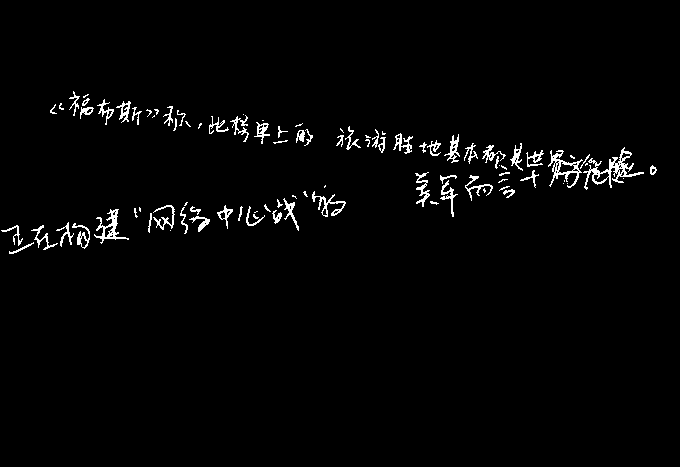 《福布斯》称，此榜单上的 旅游胜地基本都是世界
正在构建“网络中心战”的 美军而言十分危险。